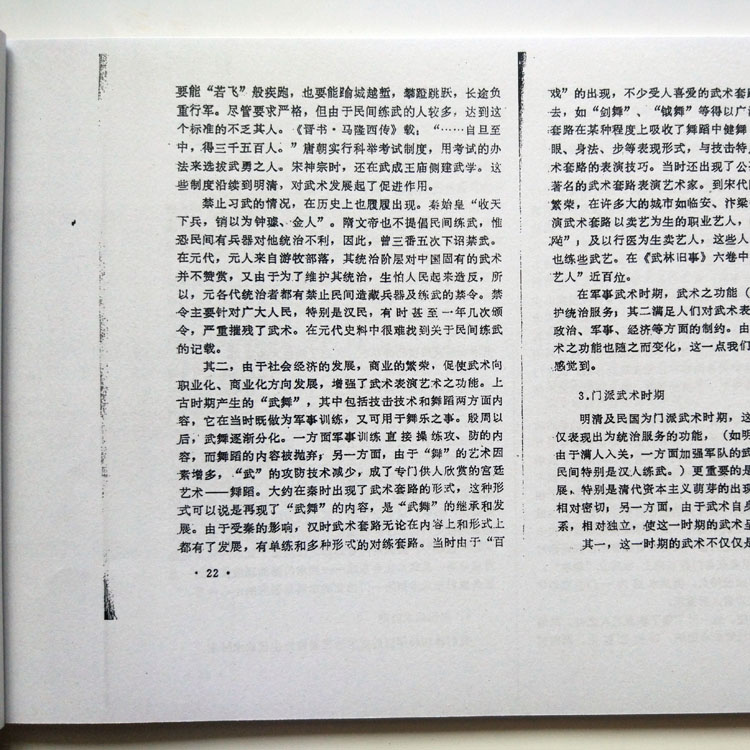 要能“若飞”般疾跑，也要能踰城越堑，攀蹬跳跃，长途负
重行军。尽管要求严格，但由于民间练武的人较多，达到这
个标准的不乏其人。《晋书·马隆西传》载：“……自旦至
中，得三千五百人。”唐朝实行科举考试制度，用考试的办
法来选拔武勇之人。宋神宗时，还在武成王庙侧建武学。这
些制度沿续到明清，对武术发展起了促进作用。
禁止习武的情况，在历史上也履履出现。秦始皇“收天
下兵，销以为钟璩、金人”。隋文帝也不提倡民间练武，惟
恐民间有兵器对他统治不利，因此，曾三番五次下诏禁武。
在元代，元人来自游牧部落，其统治阶层对中国固有的武术
并不赞赏，又由于为了维护其统治，生怕人民起来造反，所
以，元各代统治者都有禁止民间造藏兵器及练武的禁令。禁
令主要针对广大人民，特别是汉民，有时甚至一年几次颁
令，严重摧残了武术。在元代史料中很难找到关于民间练武
的记载。
其二，由于社会经济的发展，商业的繁荣，促使武术向
职业化、商业化方向发展，增强了武术表演艺术之功能。上
古时期产生的“武舞”，其中包括技击技术和舞蹈两方面内
容，它在当时既做为军事训练，又可用于舞乐之事。殷周以
后，武舞逐渐分化。一方面军事训练直接操练攻、防的内
容，而舞蹈的内容被抛弃；另一方面，由于“舞”的艺术因
素增多，“武”的攻防技术减少，成了专门供人欣赏的宫廷
艺术——舞蹈。大约在秦时出现了武术套路的形式，这种形
式可以说是再现了“武舞”的内容，是“武舞”的继承和发
展。由于受秦的影响，汉时武术套路无论在内容上和形式上
都有了发展，有单练和多种形式的对练套路。当时由于“百
· 22 ·
戏”的出现，不少受人喜爱的武术套路
去，如“剑舞”、“钺舞”等得以广
套路在某种程度上吸收了舞蹈中健舞
眼、身法、步等表现形式，与技击特
术套路的表演技巧。当时还出现了公
著名的武术套路表演艺术家。到宋代
繁荣，在许多大的城市如临安、汴梁
演武术套路以卖艺为生的职业艺人，
；及以行医为生卖艺人，这些人
也练些武艺。在《武林旧事》六卷中
艺人”近百位。
在军事武术时期，武术之功能（
护统治服务，其二满足人们对武术表
政治、军事、经济等方面的制约。由
术之功能也随之而变化，这一点我们
感觉到。
3.门派武术时期
明清及民国为门派武术时期，这
仅表现出为统治服务的功能，（如明
由于满人入关，一方面加强军队的武
民间特别是汉人练武。）更重要的是
展，特别是清代资本主义萌芽的出现
相对密切，另一方面，由于武术自身
系，相对独立，使这一时期的武术呈
其一，这一时期的武术不仅仅是